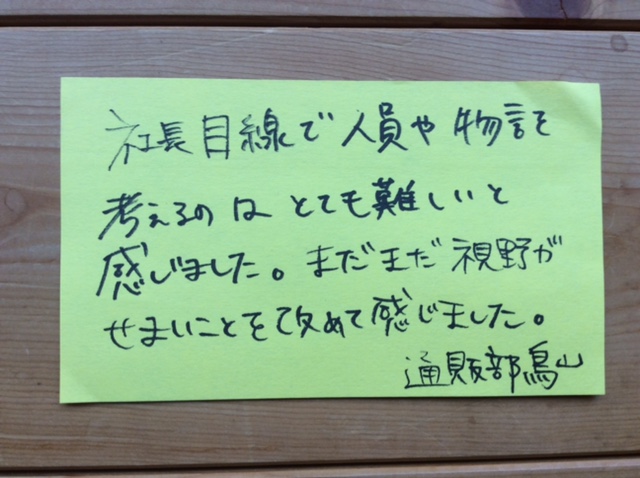 社長目線で人員や物言を
考えるのはとても難しいと
感じました。まだまだ視野が
せまいことを改めて感じました。
通販部鳥山